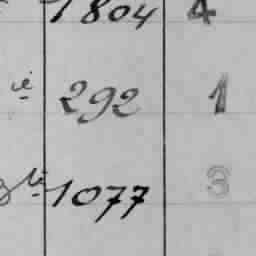 1804 4
292 1
1077 3